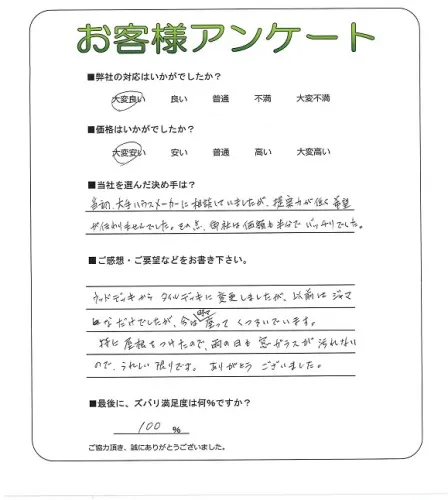 お客様アンケート
■弊社の対応はいかがでしたか？
大変良い 良い 普通 不満 大変不満
■価格はいかがでしたか？
大変安い 安い 普通 高い 大変高い
■当社を選んだ決め手は？
当初、大手ハウスメーカーに相談していましたが、提案力が低く希望
が伝わりませんでした。その点、御社は価格も半分でバッチリでした。
■ご感想・ご要望などをお書き下さい。
ウッドデッキから タイルデッキに変更しましたが、以前はジャマ
なだけでしたが、今は座って くつろいでいます。
特に屋根をつけたので、雨の日も窓ガラスが汚れない
ので、うれしい限りです。ありがとうございました。
■最後に、ズバリ満足度は何％ですか？
100 ％
ご協力頂き、誠にありがとうございました。